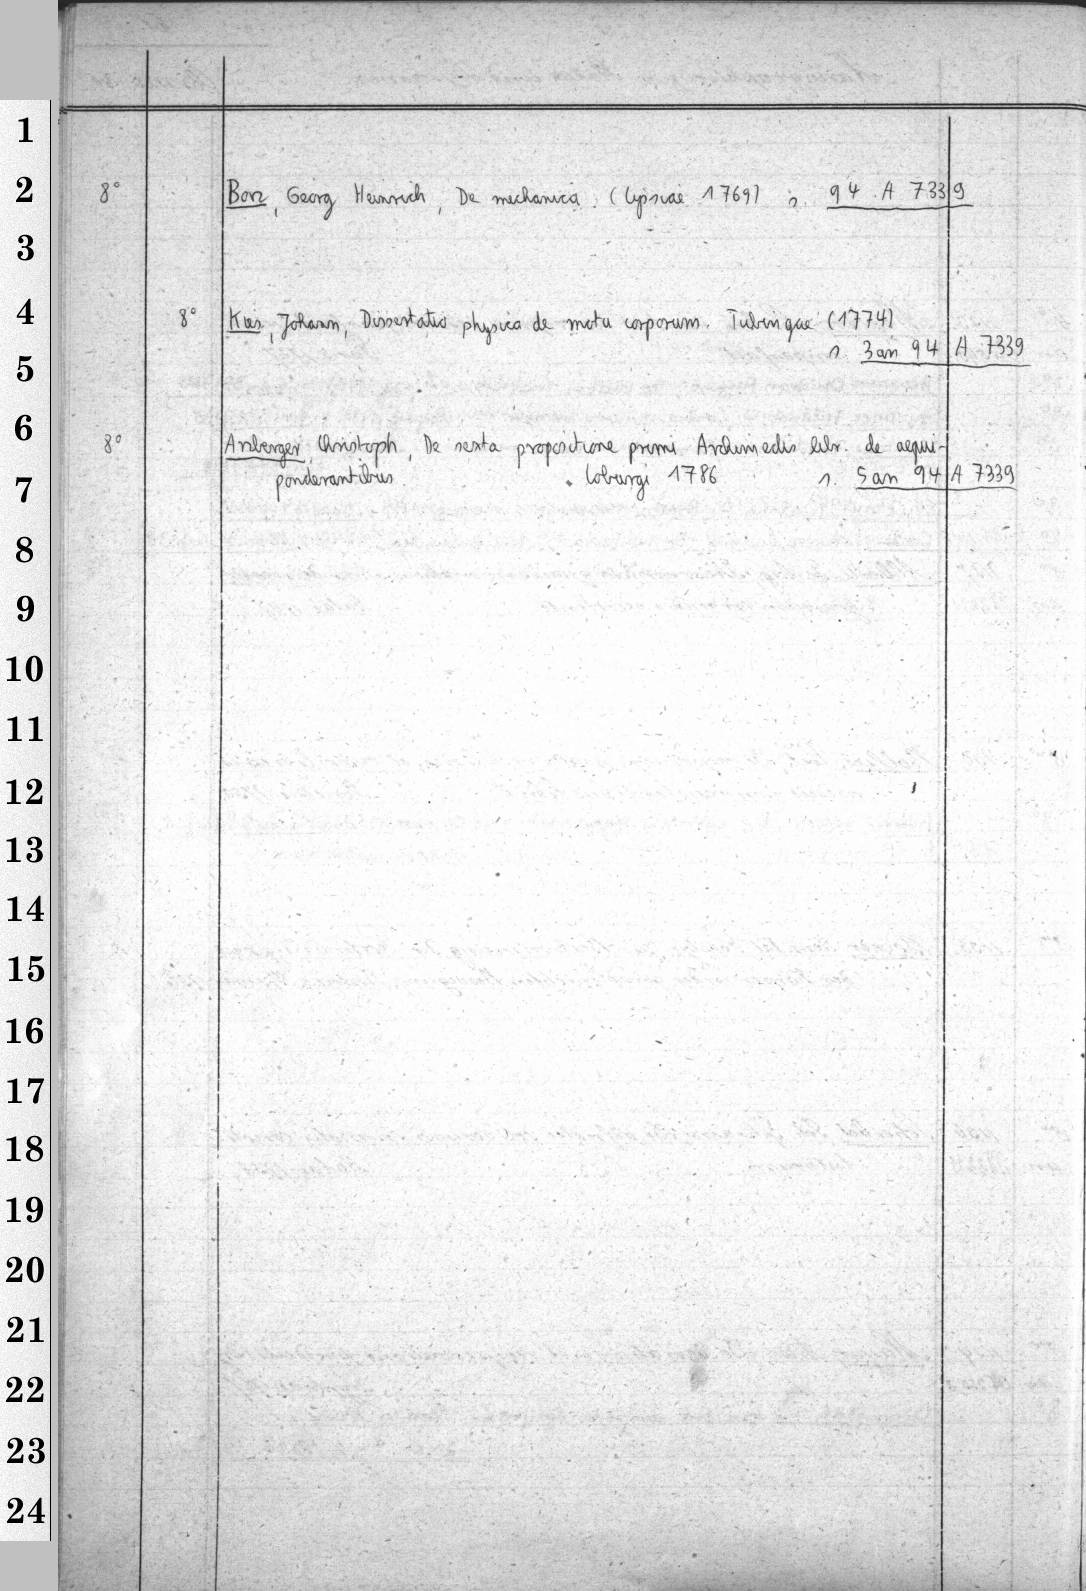 1
2
8° Borz, Georg Heinrich, De mechanica. (Lipsiae 1769) s. 94 A 7339
3
4
8° Kies, Johann, Dissertatio physica de motu corporum. Tubingae (1774)
s. 3 an 94 A 7339
5
6
8° Arzberger, Christoph, De sexta propositione primi Archimedis libr. de aequi-
ponderantibus. Coburgi 1786 s. 5 an 94 A 7339
7
8
9
10
11
12
13
14
15
16
17
18
19
20
21
22
23
24